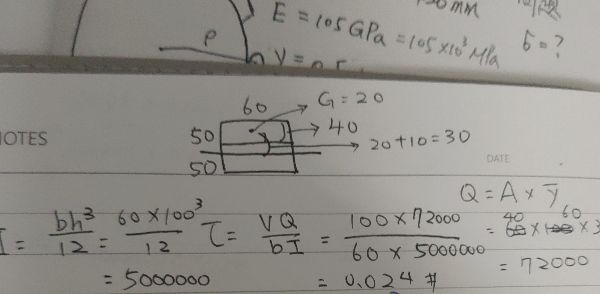 E = 105 GPa = 105×10³ MPa
ρ
δ = ?
NOTES
60
G = 20
50
40
20+10=30
50
DATE
Q = A × ȳ
I = bh³/12 = 60×100³/12
= 5000000
τ = VQ/bI = 100×72000/60×5000000
= 0.024 #
= 40 60
= 72000